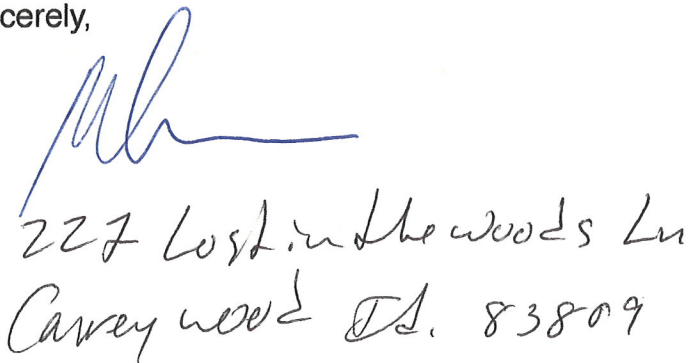 cerely,
227 Lost in the woods Ln
Careywood Id. 83809